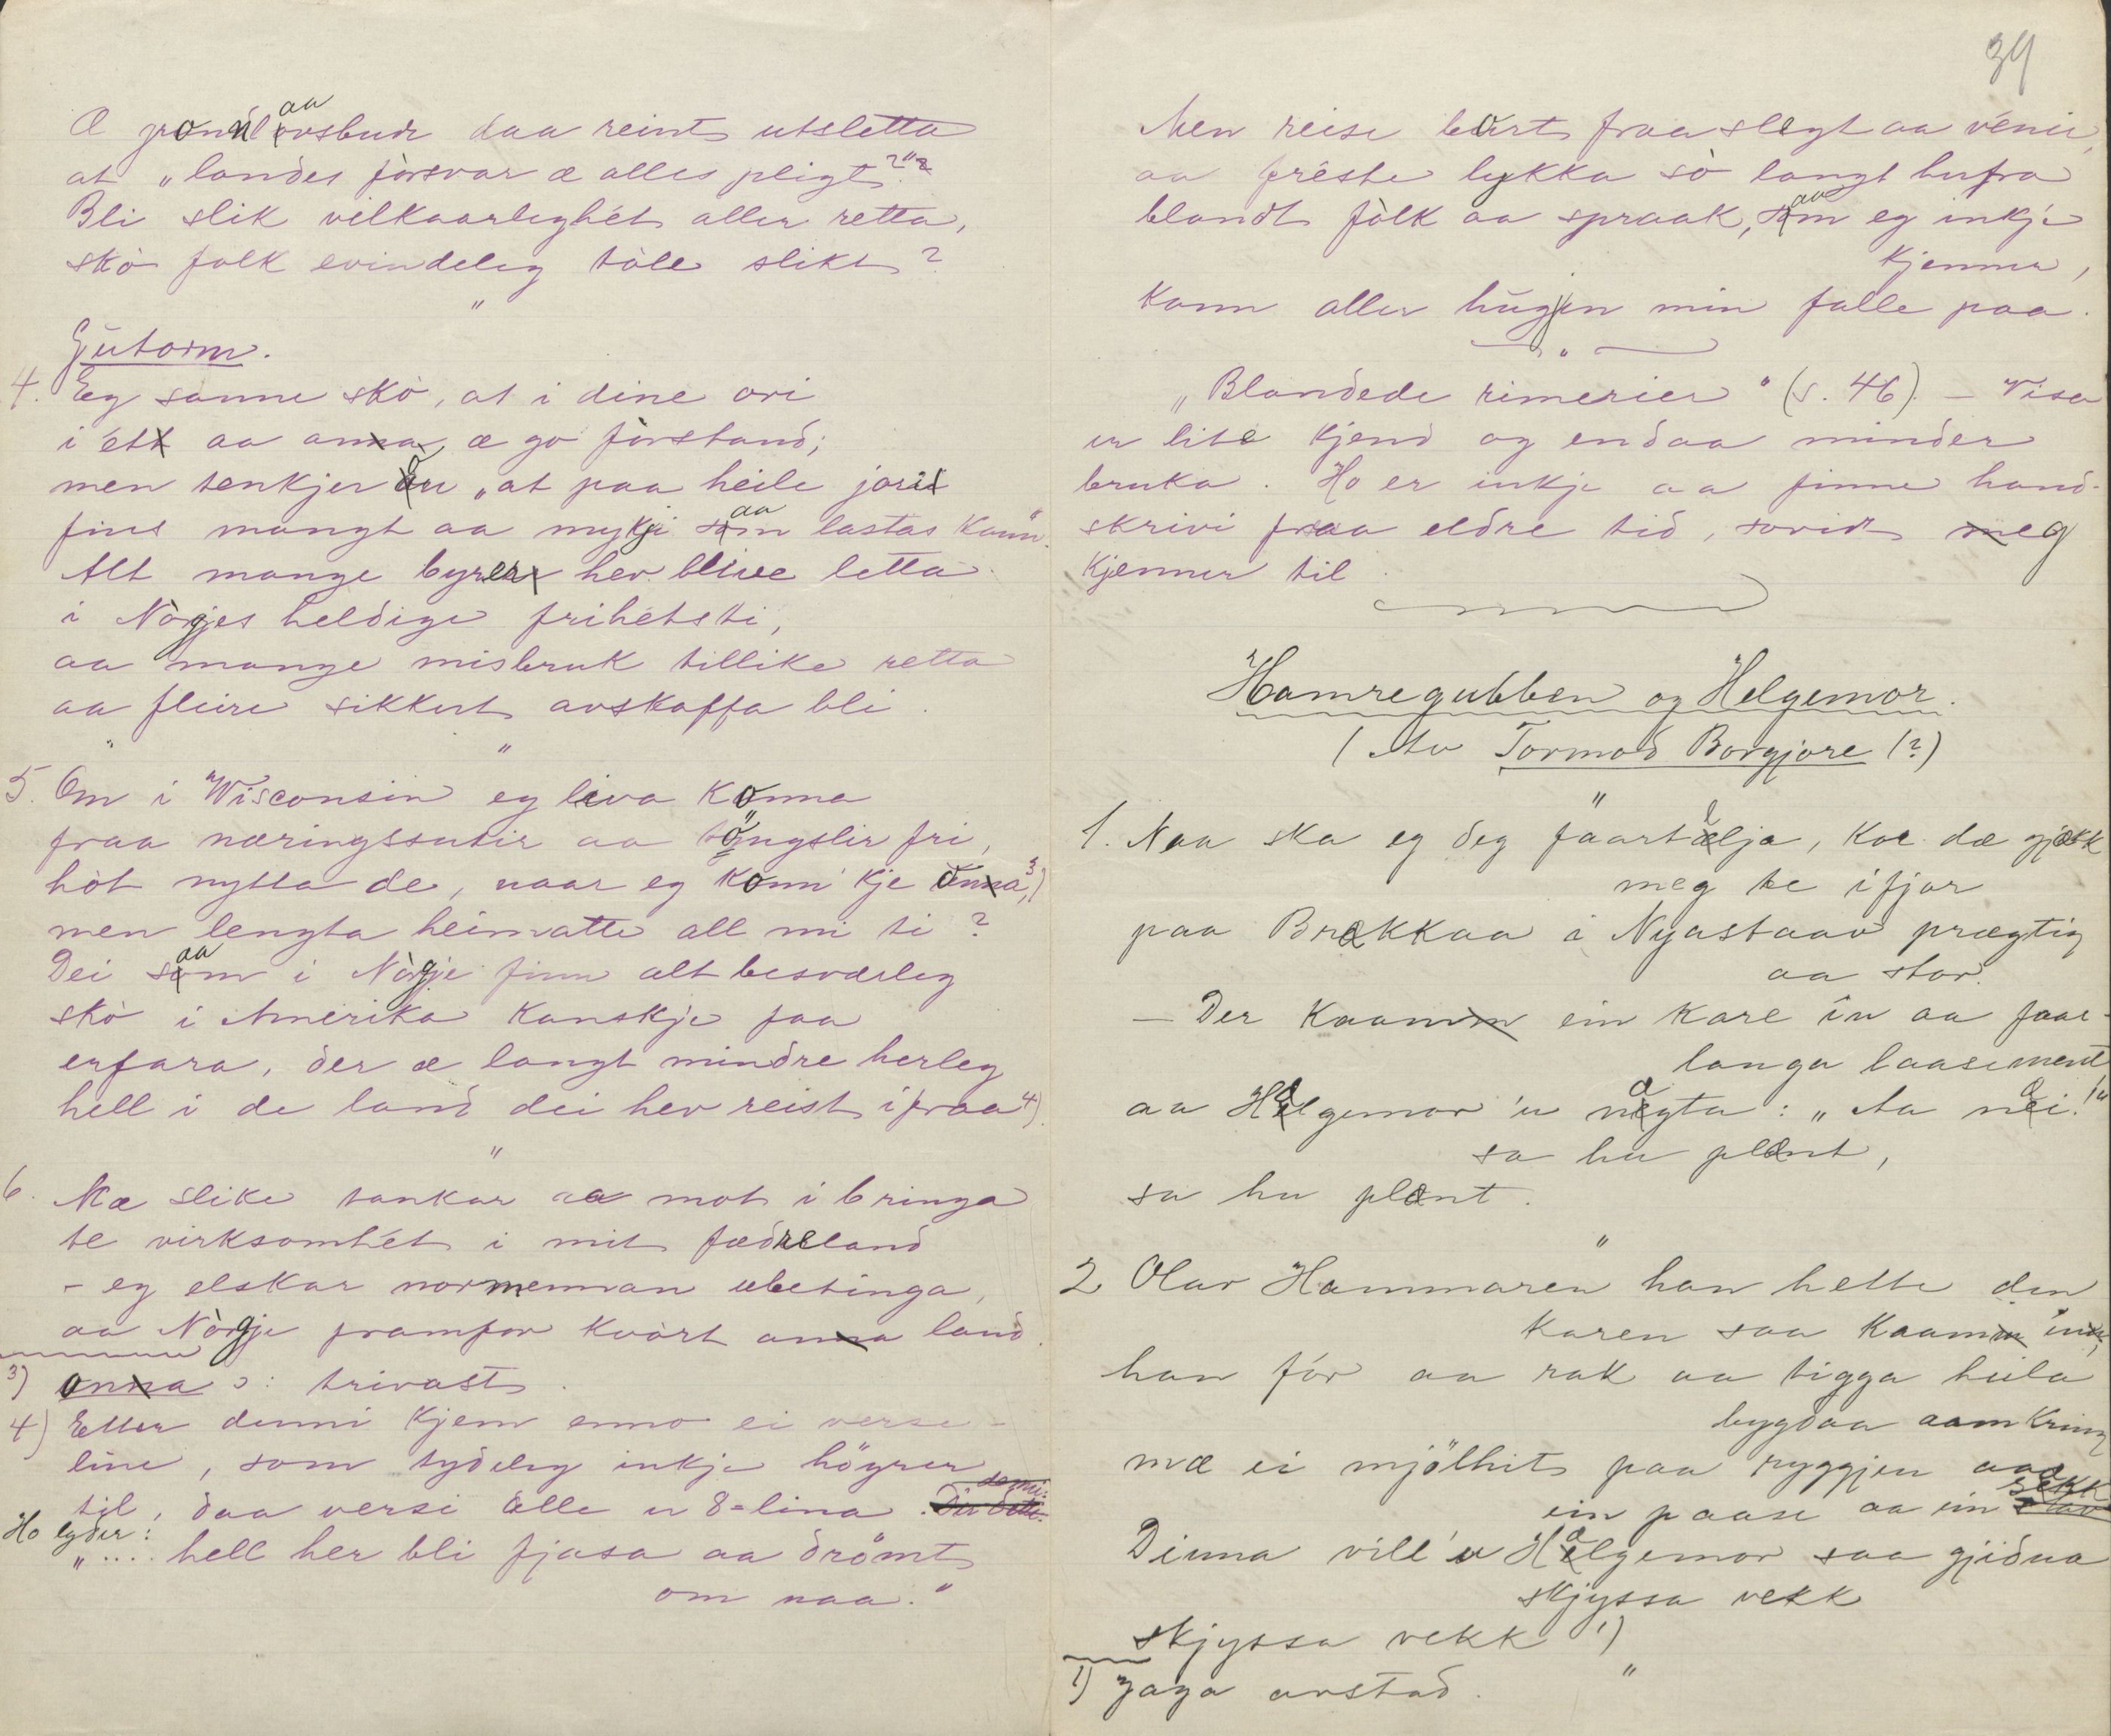 Æ gronnlaavsbudr daa reint utsletta
at „landes försvar æ alles pligt?"
Bli slik vilkaarleghét aller retta,
skò folk evindeleg tòle slikt?
"
Gutorm.
4. Eg sanne skò, at i dine ori
i ét aa ana, æ go fòrstand;
men tenkjer du „at paa heile jori
fins mangt aa mykji saam lastas kann".
Alt mange byrer hev blive letta
i Nòrgjes heldige frihétsti,
aa mange misbruk tillike retta
aa fleire sikkert avskaffa bli.
" "
5. Om i Wisconsin eg leva konna
fraa næringssutir aa tõngslir fri,
hòt nytta de, naar eg konn' kje ona,3)
men lengta heimatte all mi ti?
Dei saam i Nòrgje finn alt besværleg
skò i Amerika kanskje faa
erfara, der æ langt mindre herleg
hell i de land dei hev reist ifraa4).
"
6. Mæ slike tankar aa mot i bringa
te virksomhét i mit fædreland
– eg elskar normennan ubetinga,
aa Nòrgje framfor kvòrt ana land.
3) ona ɔ: trivast.
4) Etter denni kjem enno ei verse-
line, som tydeleg inkje högrer
til, daa versi elle er 8-lina.
Ho lyder:
".... hell her bli fjasa aa drömt
om naa."
39
Men reise burt fraa slegt aa vénir,
aa fréste lykka sò langt hufra
blandt fòlk aa spraak, saam eg inkje
kjenner,
kann aller hugjen min falle paa.
"
„Blandede rimerier" (s. 46). – Visa
er lite kjend og endaa minder
bruka. Ho er inkje aa finne hand-
skrivi fraa eldre tid, sovidt eg
kjenner til.
Hamregubben og Helgemor.
(Av Tormod Borgjore (?)
"
1. Naa ska eg deg faartelja, koe dæ gjekk
meg te ifjor
paa Brækkaa i Nyastaav prægtig
aa stor.
– Der kaam ein kare in aa faar-
langa laasement
aa Hælgemor 'u nægta: „Aa næi!"
sa hu plent,
sa hu plent.
"
2. Olav Hammaren han hette den
karen saa kaam in,
han fór aa rak aa tigga heila
bygdaa aamkring
mæ ei mjölhit paa ryggjen aa
ein paase aa ein sekk
Dinna vill'u Hælgemor saa gjidna
skjyssa vekk
skjyssa vekk 1)
"
1) jaga avstad.